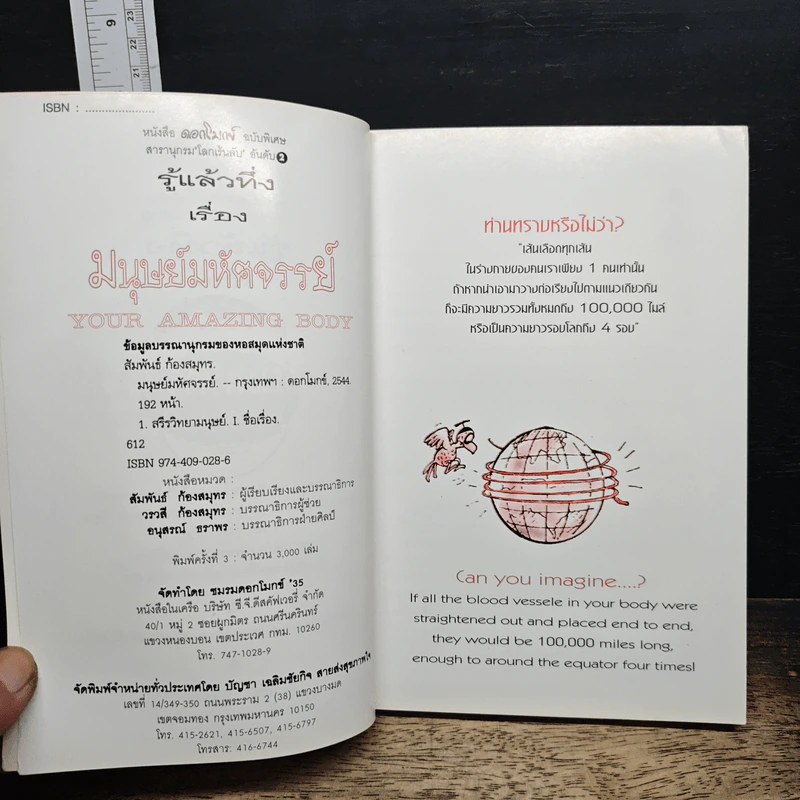 9
23
22
21
ISBN : ......................
หนังสือ ดอกโมกข์ ฉบับพิเศษ
สารานุกรม"โลกเร้นลับ" อันดับ 2
รู้แล้วทึ่ง
เรื่อง
มนุษย์มหัศจรรย์
YOUR AMAZING BODY
ข้อมูลบรรณานุกรมของหอสมุดแห่งชาติ
สัมพันธ์ ก้องสมุทร.
มนุษย์มหัศจรรย์. -- กรุงเทพฯ : ดอกโมกข์, 2544.
192 หน้า.
1. สรีรวิทยามนุษย์. I. ชื่อเรื่อง.
612
ISBN 974-409-028-6
หนังสือหมวด :
สัมพันธ์ ก้องสมุทร : ผู้เรียบเรียงและบรรณาธิการ
วรวสี ก้องสมุทร : บรรณาธิการผู้ช่วย
อนุสรณ์ ธราพร : บรรณาธิการฝ่ายศิลป์
พิมพ์ครั้งที่ 3 : จำนวน 3,000 เล่ม
จัดทำโดย ชมรมดอกโมกข์ '35
หนังสือในเครือ บริษัท ซี.จี.ดีสคัฟเวอรี่ จำกัด
40/1 หมู่ 2 ซอยผูกมิตร ถนนศรีนครินทร์
แขวงหนองบอน เขตประเวศ กทม. 10260
โทร. 747-1028-9
จัดพิมพ์จำหน่ายทั่วประเทศโดย บัญชา เฉลิมชัยกิจ สายส่งสุขภาพใจ
เลขที่ 14/349-350 ถนนพระราม 2 (38) แขวงบางมด
เขตจอมทอง กรุงเทพมหานคร 10150
โทร. 415-2621, 415-6507, 415-6797
โทรสาร: 416-6744
ท่านทราบหรือไม่ว่า?
"เส้นเลือดทุกเส้น
ในร่างกายของคนเราเพียง 1 คนเท่านั้น
ถ้าหากนำเอามาวางต่อเรียงไปตามแนวเดียวกัน
ก็จะมีความยาวรวมทั้งหมดถึง 100,000 ไมล์
หรือเป็นความยาวรอบโลกถึง 4 รอบ"
Can you imagine....?
If all the blood vessele in your body were
straightened out and placed end to end,
they would be 100,000 miles long,
enough to around the equator four times!